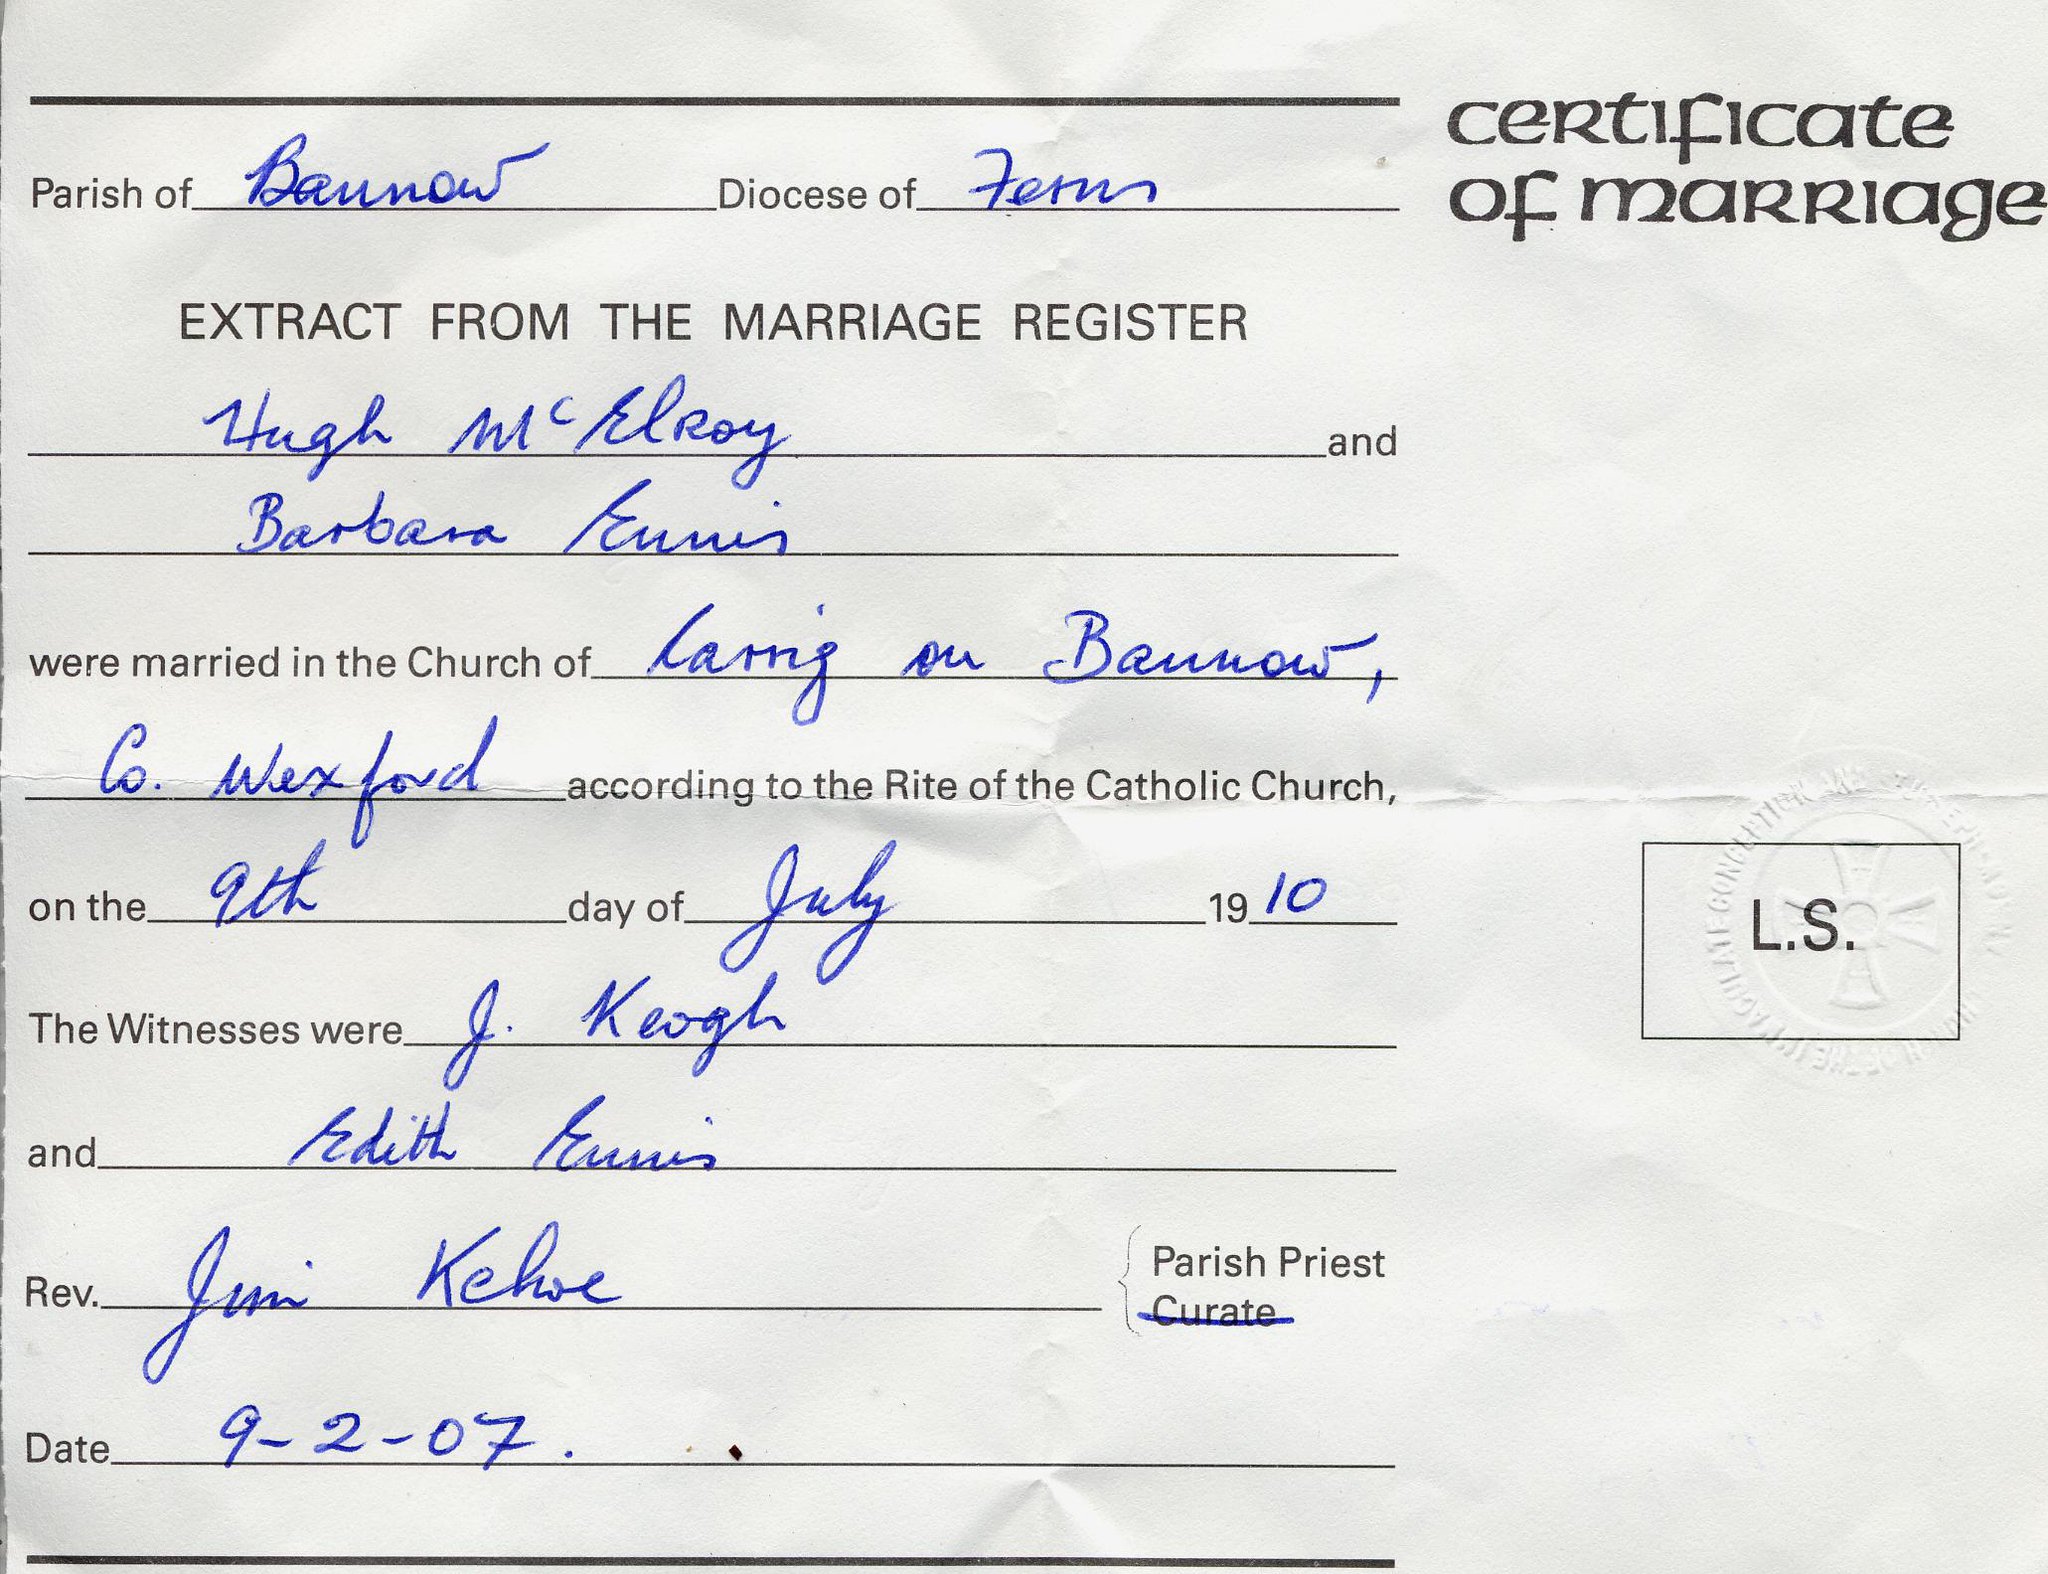 certificate
of marriage
Parish of Bannow Diocese of Ferns
EXTRACT FROM THE MARRIAGE REGISTER
Hugh McElroy and
Barbara Ennis
were married in the Church of Carrig on Bannow,
Co. Wexford according to the Rite of the Catholic Church,
on the 9th day of July 1910
L.S.
The Witnesses were J. Keogh
and Edith Ennis
Rev. Jim Kehoe Parish Priest
Curate
Date 9-2-07.